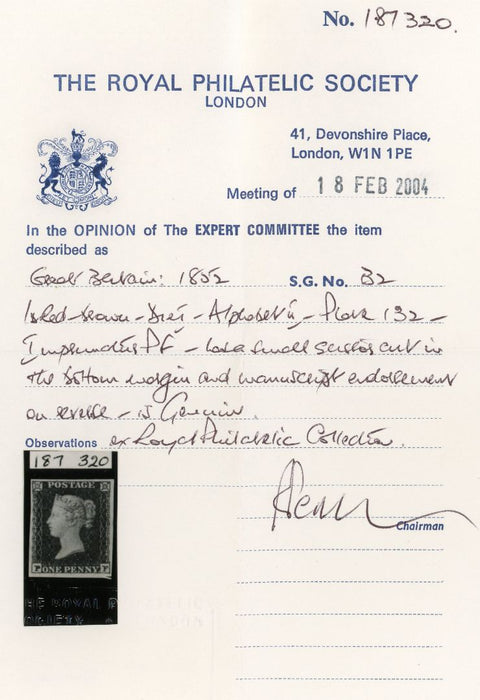 No. 187320.
THE ROYAL PHILATELIC SOCIETY
LONDON
41, Devonshire Place,
London, W1N 1PE
Meeting of 18 FEB 2004
In the OPINION of The EXPERT COMMITTEE the item
described as
Great Britain: 1852 S.G. No. B2
1d Red-brown - Die I - Alphabet II - Plate 132 -
Imprimatur PF - has a small scissor cut in
the bottom margin and manuscript endorsement
on reverse - is Genuine.
Observations ex Royal Philatelic Collection.
187 320
POSTAGE
ONE PENNY
HE ROYAL P
OCIETY
Chairman